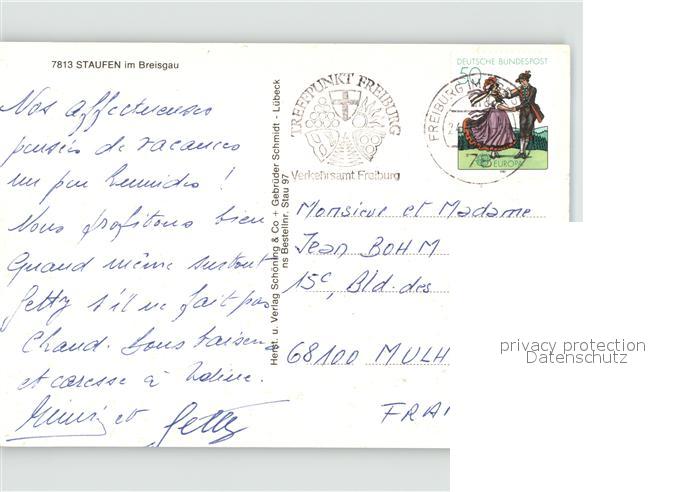 7813 STAUFEN im Breisgau
Nos affectueuses
pensées de vacances
un peu humides !
Nous profitons bien
Quand même surtout
Getty s'il ne fait pas
Chaud. Bons baisers
et caresse à
et Getty
Herst. u. Verlag Schöning & Co + Gebrüder Schmidt - Lübeck
ns Bestellnr. Stau 97
TREFFPUNKT FREIBURG
Verkehrsamt Freiburg
FREIBURG
DEUTSCHE BUNDESPOST
50
EUROPA
Monsieur et Madame
Jean BOHM
15c, Bld. des
68100 MULH
FRA
privacy protection
Datenschutz